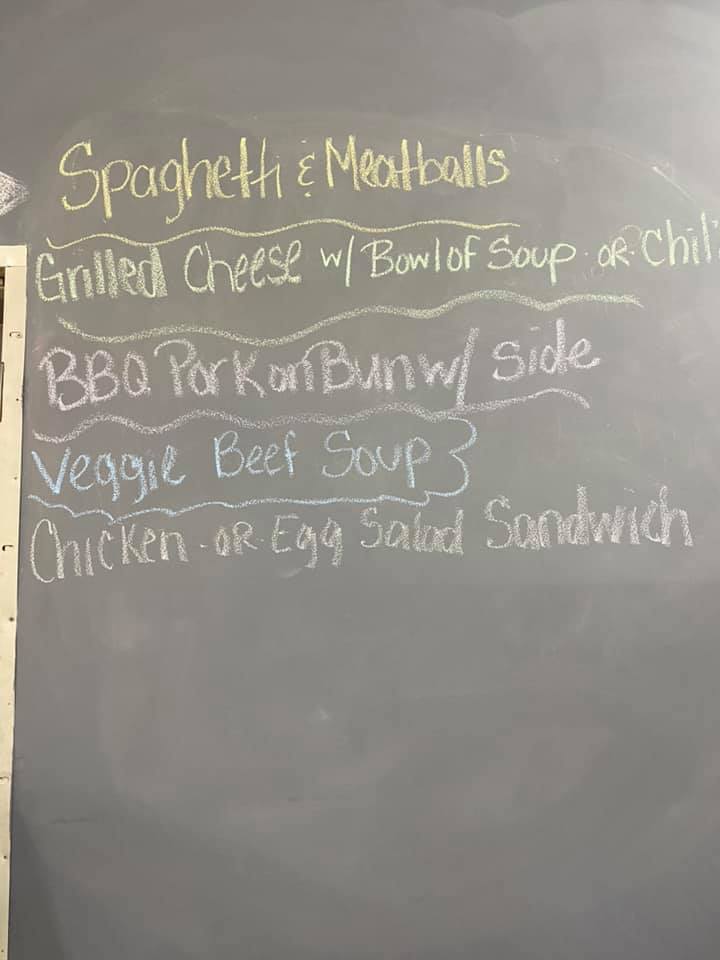 Spaghetti & Meatballs
Grilled Cheese w/ Bowl of Soup - OR - Chil
BBQ Pork on Bun w/ Side
Veggie Beef Soup
Chicken - OR - Egg Salad Sandwich